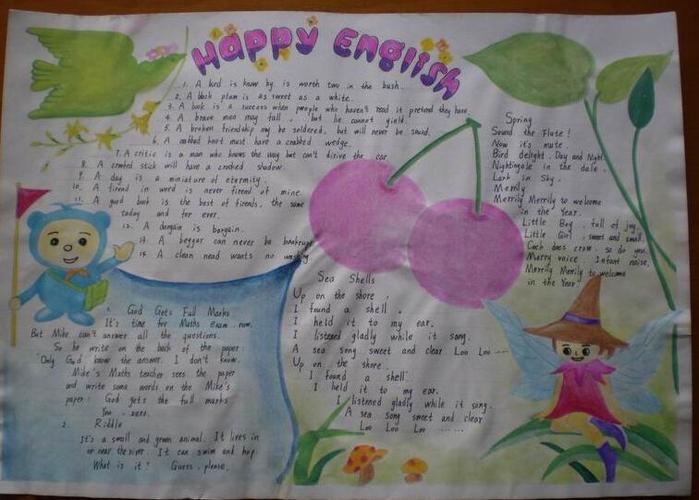 Happy English
1. A bird is know by is worth two in the bush.
2. A black plum is as sweet as a white.
3. A book is a success when people who haven't read it pretend they have.
4. A brave man may fall, but he cannot yield.
5. A broken friendship may be soldered, but will never be sound.
6. A must have a wedge.
7. A critic is a man who knows the way but can't drive the car
8. A crooked stick will have a crooked shadow.
9. A day is a miniature of eternity.
10. A friend in word is never friend of mine.
11. A good book is the best of friends, the same
today and for ever.
12. A bargain is bargain.
13. A beggar can never be bankrupt
14. A clean head wants no washing
Spring
Sound the Flute!
Now it's mute.
Bird delight, Day and Night
Nightingale in the dale,
Lark in Sky.
Merrily
Merrily Merrily to welcome
in the Year.
Little Boy, full of joy,
Little Girl, sweet and small,
Cock does crow, so do you.
Merry voice, Infant noise,
Merrily Merrily to welcome
in the Year
Sea Shells
Up on the shore,
I found a shell,
I held it to my ear.
I listened gladly while it song.
A sea song sweet and clear Loo Loo ---
Up on the shore
I found a shell
I held it to my ear.
I listened gladly while it song.
A sea song sweet and clear
Loo Loo Loo ......
1. God Gets Full Marks
It's time for Maths exam now.
But Mike can't answer all the questions.
So he write on the back of the paper:
"Only God know the answer. I don't know.
Mike's Maths teacher sees the paper
and write some words on the Mike's
paper: God gets the full marks
You - zero.
2. Riddle
It's a small and green animal. It lives in
or near the river. It can swim and hop.
What is it? Guess, please.